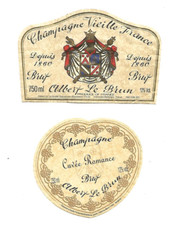 Champagne Vieille France
Depuis Depuis
1860 1860
Brut Brut
750ml Albert Le Brun 12%
Champagne
Cuvée Romance
Brut
Albert Le Brun